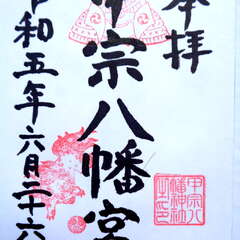 奉拝
甲宗八幡宮
令和五年六月二十六
甲宗八
幡神社